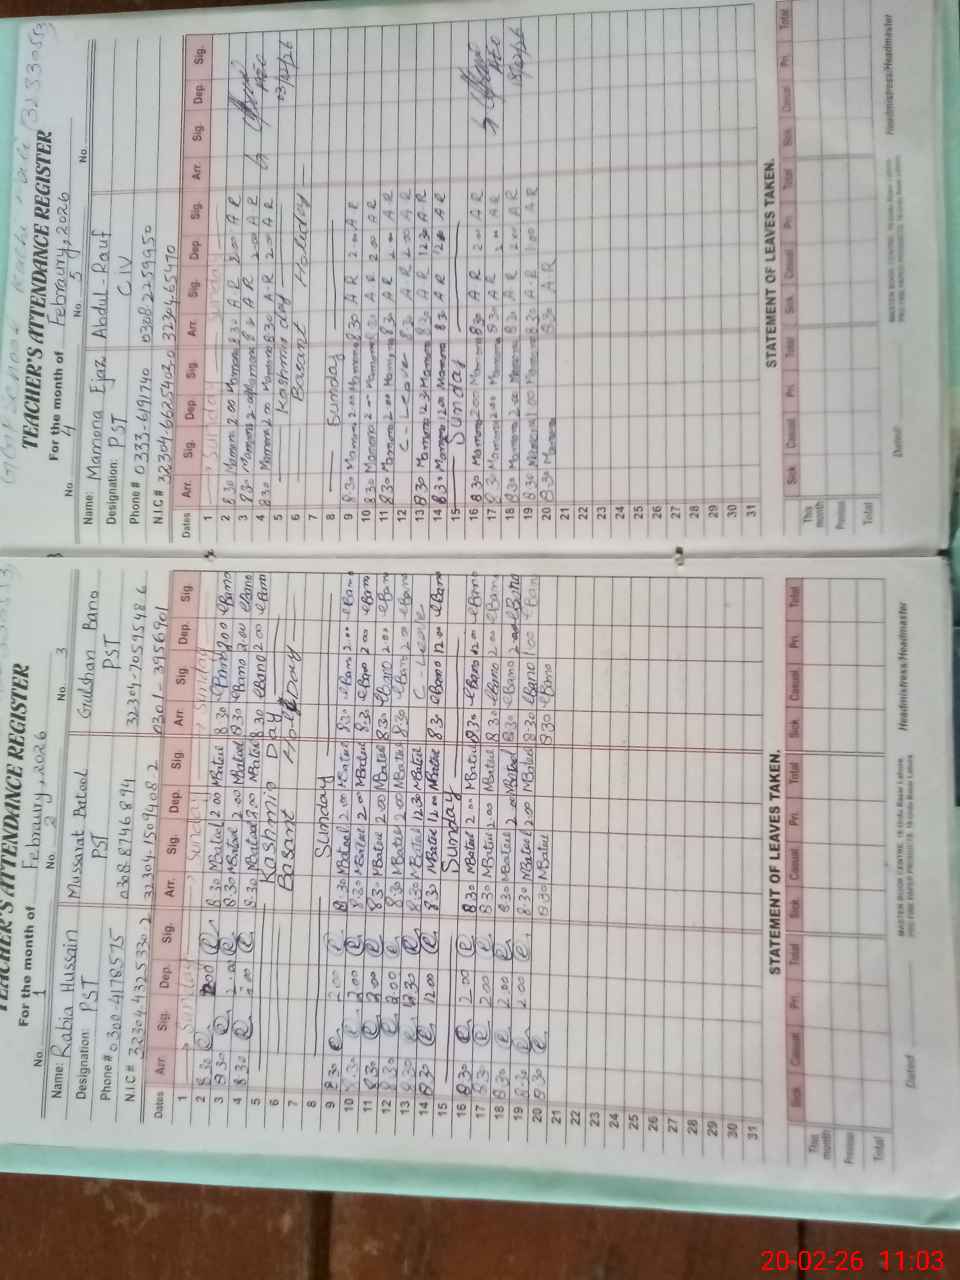 TEACHER'S ATTENDANCE REGISTER
For the month of Febraury, 2026
No. 1 No. 2 No. 3
Name: Rabia Hussain Mussarat Batool Gulshan Bano
Designation: PST PST PST
Phone # 0300-4178575 0308-8746894
N.I.C # 32304-1509408-2 0301-3956901
Dates Arr. Sig. Dep. Sig. Arr. Sig. Dep. Sig. Arr. Sig. Dep. Sig.
1 Sunday Sunday Sunday
2 8 30 2 00 8 30 MBatul 2 00 MBatul 8 30 eBano 2 00 eBano
3 8 30 2 00 8 30 MBatul 2 00 MBatul 8 30 eBano 2 00 eBano
4 8 30 2 00 8 30 MBatul 2 00 MBatul 8 30 eBano 2 00 eBano
5 Kashmir Day
6 Basant Holiday
7
8 Sunday
9 8 30 2 00 8 30 MBatul 2 00 MBatul 8 30 eBano 2 00 eBano
10 8 30 2 00 8 30 MBatul 2 00 MBatul 8 30 eBano 2 00 eBano
11 8 30 2 00 8 30 MBatul 2 00 MBatul 8 30 eBano 2 00 eBano
12 8 30 2 00 8 30 MBatul 2 00 MBatul 8 30 eBano 2 00 eBano
13 8 30 12 30 8 30 MBatul 12 30 MBatul C - Leave
14 8 30 12 00 8 30 MBatul 12 00 MBatul 8 30 eBano 12 00 eBano
15 Sunday
16 8 30 2 00 8 30 MBatul 2 00 MBatul 8 30 eBano 2 00 eBano
17 8 30 2 00 8 30 MBatul 2 00 MBatul 8 30 eBano 2 00 eBano
18 8 30 2 00 8 30 MBatul 2 00 MBatul 8 30 eBano 2 00 eBano
19 8 30 2 00 8 30 MBatul 2 00 MBatul 8 30 eBano 1 00 eBano
20 8 30 8 30 MBatul 8 30 eBano
21
22
23
24
25
26
27
28
29
30
31
STATEMENT OF LEAVES TAKEN.
Sick Casual Pri. Total Sick Casual Pri. Total Sick Casual Pri. Total
This month
Previous
Total
Dated Headmistress/Headmaster
TEACHER'S ATTENDANCE REGISTER
For the month of Febraury, 2026
No. 4 No. 5 No.
Name: Mamona Ejaz Abdul-Rauf
Designation: PST C IV
Phone # 0333-6191740 03082259950
N.I.C # 32304-6625403-0
Dates Arr. Sig. Dep. Sig. Arr. Sig. Dep. Sig. Arr. Sig. Dep. Sig.
1 Sunday Sunday
2 8 30 Mamona 2 00 Mamona 8 30 A R 2 00 A R
3 8 30 Mamona 2 00 Mamona 8 30 A R 2 00 A R
4 8 30 Mamona 2 00 Mamona 8 30 A R 2 00 A R AEO
5 Kashmir day 03/02/26
6 Basant Holiday
7
8 Sunday
9 8 30 Mamona 2 00 Mamona 8 30 A R 2 00 A R
10 8 30 Mamona 2 00 Mamona 8 30 A R 2 00 A R
11 8 30 Mamona 2 00 Mamona 8 30 A R 2 00 A R
12 C - Leave 8 30 A R 2 00 A R
13 8 30 Mamona 12 30 Mamona 8 30 A R 12 30 A R
14 8 30 Mamona 12 00 Mamona 8 30 A R 12 00 A R
15 Sunday
16 8 30 Mamona 2 00 Mamona 8 30 A R 2 00 A R
17 8 30 Mamona 2 00 Mamona 8 30 A R 2 00 A R AEO
18 8 30 Mamona 2 00 Mamona 8 30 A R 2 00 A R
19 8 30 Mamona 1 00 Mamona 8 30 A R 1 00 A R
20 8 30 Mamona 8 30 A R
21
22
23
24
25
26
27
28
29
30
31
STATEMENT OF LEAVES TAKEN.
Sick Casual Pri. Total Sick Casual Pri. Total Sick Casual Pri. Total
This month
Previous
Total
Dated Headmistress/Headmaster
20-02-26 11:03